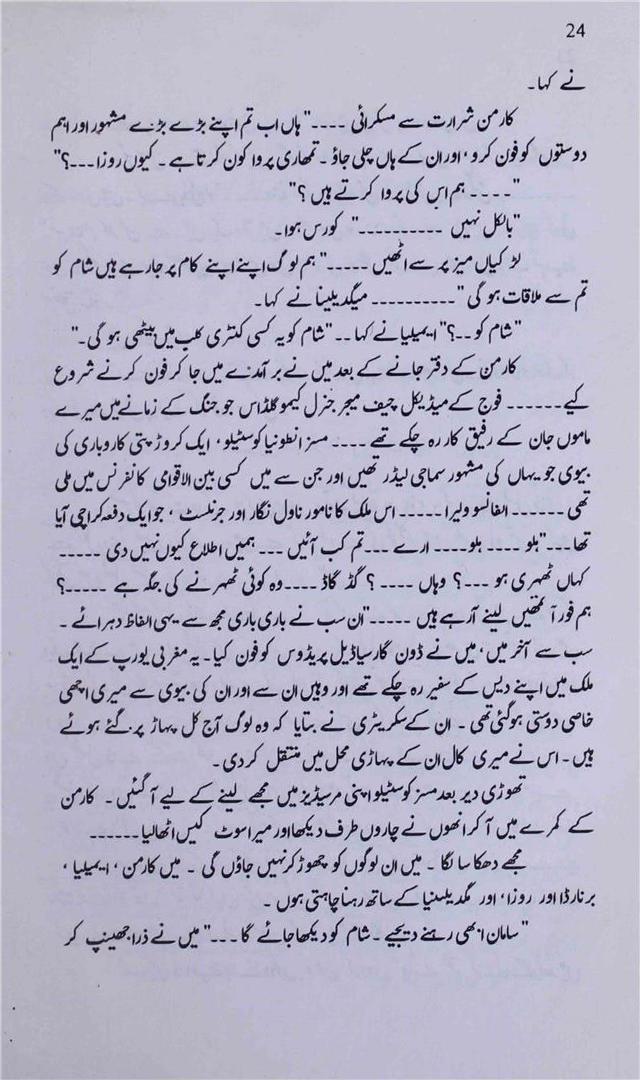 24
نے کہا۔
کارمن شرارت سے مسکرائی ----" ہاں اب تم اپنے بڑے بڑے مشہور اور اہم
دوستوں کو فون کرو، اور ان کے ہاں چلی جاؤ۔ تمھاری پروا کون کرتا ہے۔ کیوں روزا---؟"
"---- ہم اس کی پروا کرتے ہیں؟"
"بالکل نہیں ----------" کورس ہوا۔
لڑکیاں میز پر سے اٹھیں -----" ہم لوگ اپنے اپنے کام پر جا رہے ہیں شام کو
تم سے ملاقات ہو گی"---------- میگدیلینا نے کہا۔
"شام کو--؟" ایمیلیا نے کہا--"شام کو یہ کسی کنٹری کلب میں بیٹھی ہو گی۔"
کارمن کے دفتر جانے کے بعد میں نے برآمدے میں جا کر فون کرنے شروع
کیے------ فوج کے میڈیکل چیف میجر جنرل کیمو گلڈاس جو جنگ کے زمانے میں میرے
ماموں جان کے رفیق کار رہ چکے تھے ---- مسز انطونیا کوسٹیلو، ایک کروڑ پتی کاروباری کی
بیوی جو یہاں کی مشہور سماجی لیڈر تھیں اور جن سے میں کسی بین الاقوامی کانفرنس میں ملی
تھی ------ الفانسو ولیرا ----- اس ملک کا نامور ناول نگار اور جرنلسٹ، جو ایک دفعہ کراچی آیا
تھا---"ہلو ---- ہلو---- ارے ---تم کب آئیں --- ہمیں اطلاع کیوں نہیں دی -----
کہاں ٹھہری ہو ---؟ وہاں ----؟ گڈ گاڈ----وہ کوئی ٹھہرنے کی جگہ ہے -----؟
ہم فوراً تمھیں لینے آ رہے ہیں -----"ان سب نے باری باری مجھ سے یہی الفاظ دہرائے۔
سب سے آخر میں، میں نے ڈون گارسیا ڈیل پریڈوس کو فون کیا۔ یہ مغربی یورپ کے ایک
ملک میں اپنے دیس کے سفیر رہ چکے تھے اور وہیں ان سے اور ان کی بیوی سے میری اچھی
خاصی دوستی ہو گئی تھی۔ ان کے سکریٹری نے بتایا کہ وہ لوگ آج کل پہاڑ پر گئے ہوئے
ہیں۔ اس نے میری کال ان کے پہاڑی محل میں منتقل کر دی۔
تھوڑی دیر بعد مسز کوسٹیلو اپنی مرسیڈیز میں مجھے لینے کے لیے آ گئیں۔ کارمن
کے کمرے میں آ کر انھوں نے چاروں طرف دیکھا اور میرا سوٹ کیس اٹھا لیا------
مجھے دھکا سا لگا۔ میں ان لوگوں کو چھوڑ کر نہیں جاؤں گی۔ میں کارمن، ایمیلیا،
برنارڈا اور روزا، اور مگدیلینا کے ساتھ رہنا چاہتی ہوں۔
"سامان ابھی رہنے دیجیے۔ شام کو دیکھا جائے گا---" میں نے ذرا جھینپ کر